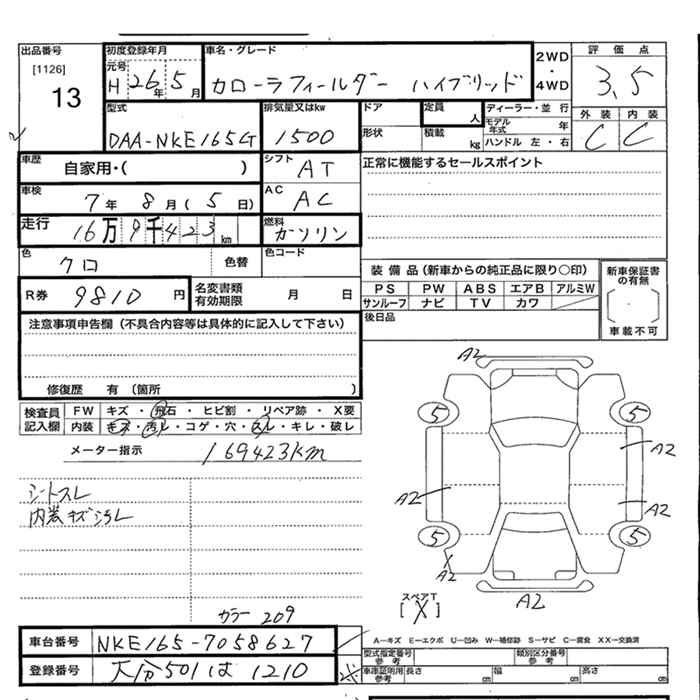 出品番号 初度登録年月 車名・グレード 2WD・4WD 評価点
[1126] 13 元号 H 26年 5月 カローラフィールダー ハイブリッド 3.5
型式 排気量又はkw ドア 定員 人 ディーラー・並行 外装 内装
DAA-NKE165G 1500 形状 積載 kg モデル年式 年 ハンドル 左・右 C C
車歴 自家用・( ) シフト AT 正常に機能するセールスポイント
車検 7年 8月 (5日) AC AC
走行 16万9千423km 燃料 ガソリン
色 クロ 色替 色コード
装備品(新車からの純正品に限り○印) 新車保証書の有無
R券 9810円 名変書類有効期限 月 日 PS PW ABS エアB アルミW
サンルーフ ナビ TV カワ
注意事項申告欄(不具合内容等は具体的に記入して下さい) 後日品 車載不可
修復歴 有 (箇所 )
検査員記入欄 FW キズ・飛石・ヒビ割・リペア跡・X要
内装 キズ・汚レ・コゲ・穴・スレ・キレ・破レ
メーター指示 169423km
シートスレ
内装キズ汚レ
カラー 209
A2
5 5
A2
A2 A2
5 5
A2 A2
スペアT
[X]
車台番号 NKE165-7058627 A-キズ E-エクボ U-凹み W-補修跡 S-サビ C-腐食 XX-交換済
型式指定番号 参考 類別区分番号 参考
登録番号 大分501は1210 車庫証明用 参考 長さ cm 幅 cm 高さ cm